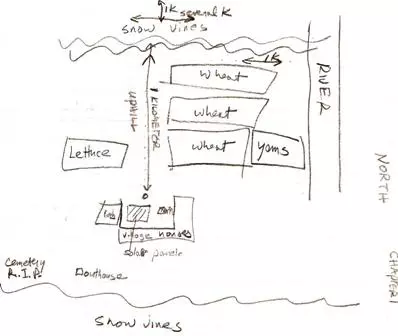 1K
several K
snow vines
1K
wheat
wheat
wheat
yams
RIVER
UPHILL
1 KILOMETER
Lettuce
village houses
solar panels
Cemetery
R.I.P.
outhouse
snow vines
NORTH
CHAPTER 1